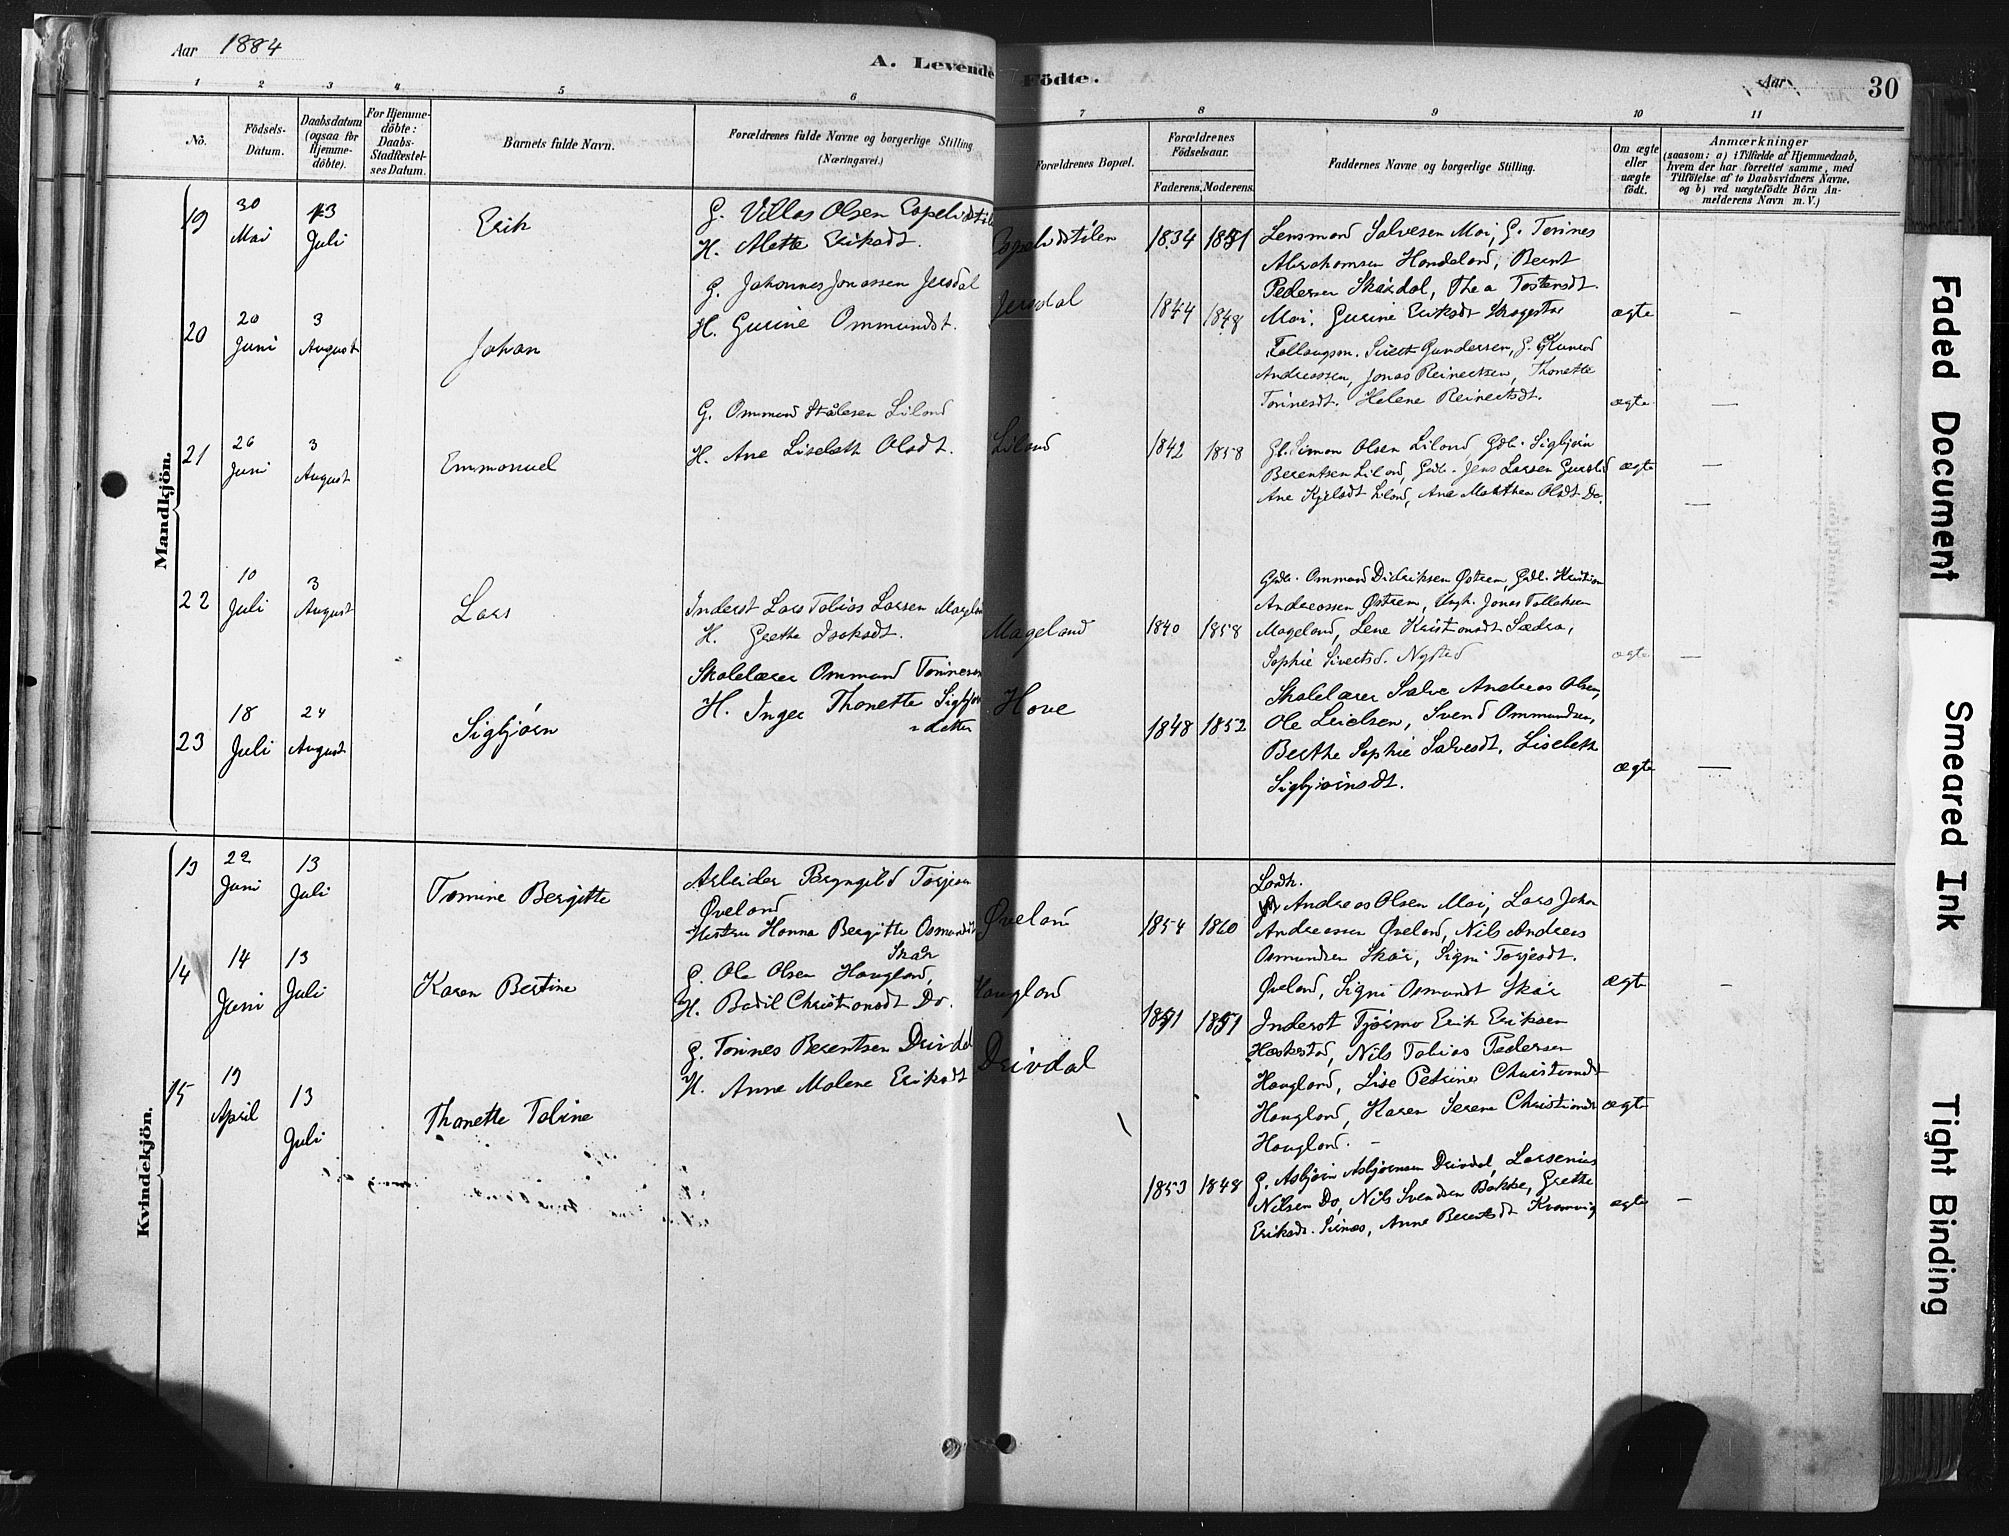 Aar 1884
A. Levende Födte.
Aar
30
1 2 3 4 5 6 7 8 9 10 11
No.
Födsels-Datum.
Daabsdatum (ogsaa for Hjemme-döbte).
For Hjemme-döbte: Daabs-Stadfæstel-ses Datum.
Barnets fulde Navn.
Forældrenes fulde Navne og borgerlige Stilling (Næringsvei.)
Forældrenes Bopæl.
Forældrenes Födselsaar.
Faderens. Moderens.
Faddernes Navne og borgerlige Stilling.
Om ægte eller uægte födt.
Anmærkninger
(saasom: a) i Tilfælde af Hjemmedaab,
hvem der har forrettet samme, med
Tilföielse af to Daabsvidners Navne,
og b) ved uægtefödte Börn An-
melderens Navn m. V.)
Mandkjön.
19
30 Mai
13 Juli
Erik
G. Villas Olsen
H. Alette Eriksdt.
1834 1851
Lensmand Salvesen Moi, G. Tørines
Abrahamsen Handeland, Bernt
Pedersen Skårdal, Thea Tostensdt.
Moi. Gurine Eriksdt
ægte
20
20 Juni
3 August
Johan
G. Johannes Jonassen Jersdal
H. Gurine Ommundst.
Jersdal
1844 1848
Sivert Gundersen, G.
Andreassen, Jonas Reinertsen, Thonette
Tørinesdt. Helene Reinertsdt.
ægte
21
26 Juni
3 August
Emmanuel
G. Ommund Stålesen Liland
H. Ane Liselette Olsdt.
Liland
1842 1858
Gb. Simon Olsen Liland Gdb. Sigbjørn
Berentsen Liland, Gdb. Jens Larsen
Ane Kjelsdt Liland, Ane Malthea Olsdt Do.
ægte
22
10 Juli
3 August
Lars
Inderst Lars Tobias Larsen Mageland
H. Grethe Isaksdt.
Mageland
1840 1858
Gdb. Ommund Didriksen Østrem, Gdb. Kristian
Andreassen Østrem, Ungk. Jonas Tollaksen
Mageland, Lene Kristiansdt Sædra,
Sophie Sivertsd. Nysted
ægte
23
18 Juli
24 August
Sigbjørn
Skolelærer Ommund Tørinesen
H. Inger Thonette Sigbjørns-
datter
Hove
1848 1852
Skolelærer Salve Andreas Olsen,
Ole Leielsen, Svend Ommundsen,
Berthe Sophie Salvesdt, Liselette
Sigbjørnsdt.
ægte
Kvindekjön.
13
22 Juni
13 Juli
Tomine Bergitte
Arbeider Bryngild Torjesen
Øveland
Hustru Hanna Bergitte Osmundsdt
Skår
Øveland
1854 1860
Landh.
Andreas Olsen Moi, Lars Johan
Andreassen Øveland, Nils Andreas
Osmundsen Skår, Signi Torjesdt.
Øveland, Signi Osmundt Skår
ægte
14
14 Juni
13 Juli
Karen Bertine
G. Ole Olsen Haugland,
H. Bodil Christiansdt Do.
Haugland
1851 1851
Inderst Tjørmo Erik Eriksen
Heskestad, Nils Tobias Pedersen
Haugland, Lise Petrine Christiansdt
Haugland, Karen Serene Christiansdt
Haugland.
ægte
15
19 April
13 Juli
Thonette Tobine
G. Tørines Berentsen Drivdal
H. Anne Malene Eriksdt
Drivdal
1853 1848
G. Asbjørn Asbjørnsen Drivdal, Larsenius
Nilsen Do, Nils Svendsen Bakke, Grethe
Eriksdt. Sirnæs, Anne Berentsdt Kvamvig
ægte
Faded Document
Smeared Ink
Tight Binding